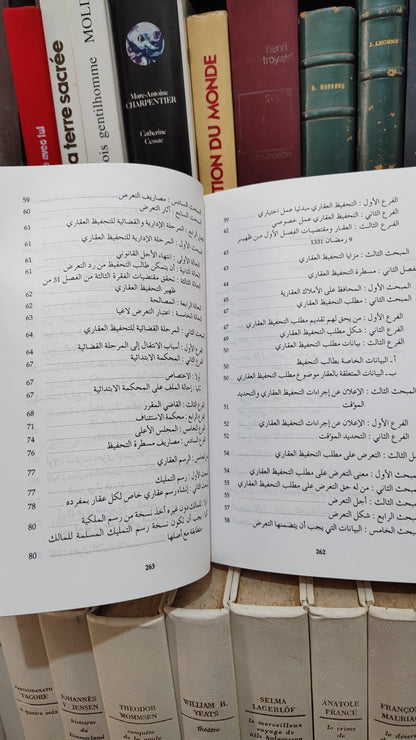 avec lui
la terre sacrée
MOLI
ois gentilhomme
Marc-Antoine
CHARPENTIER
Catherine
Cessac
TION DU MONDE
henri
troyat
الفرع الأول : التحفيظ العقاري مبدئيا عمل اختياري
39
الفرع الثاني : التحفيظ العقاري عمل خصوصي
الفرع الثالث : العقار ومقتضيات الفصل الأول من ظهير
9 رمضان 1331
المبحث الثالث : مزايا التحفيظ العقاري
الثاني : مسطرة التحفيظ العقاري
المبحث الأول : المحافظ على الأملاك العقارية
المبحث الثاني : مطلب التحفيظ العقاري
الفرع الأول : من يحق لهم تقديم مطلب التحفيظ العقاري
الفرع الثاني : شكل مطلب التحفيظ العقاري
الفرع الثالث : بيانات مطلب التحفيظ العقاري
أ- البيانات الخاصة بطالب التحفيظ
50
ب- البيانات المتعلقة بالعقار موضوع مطلب التحفيظ العقاري
50
المبحث الثالث : الإعلان عن إجراءات التحفيظ العقاري والتحديد
المؤقت
52
الفرع الأول : الإعلان عن إجراءات التحفيظ العقاري
52
الفرع الثاني : التحديد المؤقت
52
الثالث : التعرض على مطلب التحفيظ العقاري
المبحث الأول : معنى التعرض على مطلب التحفيظ العقاري
المبحث الثاني : من له حق التعرض على مطلب التحفيظ العقاري
المبحث الثالث : أجل التعرض
المبحث الرابع : شكل التعرض
المبحث الخامس : البيانات التي يجب أن يتضمنها التعرض
58
262
المبحث السادس : مصاريف التعرض
59
المبحث السابع : آثار التعرض
60
الرابع : المرحلة الإدارية والقضائية للتحفيظ العقاري
61
الأول : المرحلة الإدارية للتحفيظ العقاري
61
الحالة الأولى : انتهاء الأجل القانوني
61
الحالة الثانية : أن يتمكن طالب التحفيظ من رد التعرض
61
الحالة الثالثة : تحقق مقتضيات الفقرة الثالثة من الفصل 31 من
ظهير التحفيظ العقاري
62
الحالة الرابعة : المصالحة
62
الحالة الخامسة : اعتبار التعرض لاغيا
62
المبحث الثاني : المرحلة القضائية للتحفيظ العقاري
64
الفرع الأول : أسباب الانتقال إلى المرحلة القضائية
64
الفرع الثاني : المحكمة الابتدائية
67
أولا : الاختصاص
67
ثانيا : إحالة الملف على المحكمة الابتدائية
67
الفرع الثالث : القاضي المقرر
68
الفرع الرابع : محكمة الاستئناف
71
الفرع الخامس : المجلس الأعلى
74
الفرع السادس : مصاريف مسطرة التحفيظ
76
الخامس : الرسم العقاري
77
المبحث الأول : رسم التمليك
77
المبحث الثاني : إنشاء رسم عقاري خاص لكل عقار بمفرده
78
أولا : المالك دون غيره أخذ نسخة من رسم الملكية
79
ثانيا : يجب أن تكون نسخة رسم التمليك المسلمة للمالك
مطابقة مع أصلها
80
263
RABINDRANATH
TAGORE
JOHANNES
V. JENSEN
histoires
du
himmerland
THEODOR
MOMMSEN
conquête
de la gaule
WILLIAM B.
YEATS
théâtre
SELMA
LAGERLÖF
le merveilleux
voyage
de nils holgersson
ANATOLE
FRANCE
le crime
de
FRANÇO
MAURIA
le désert